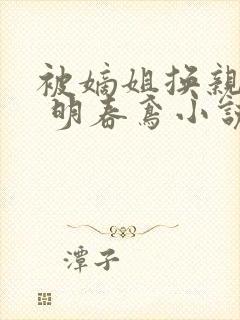 被嫡姐换親
明春鸢小說
潭子